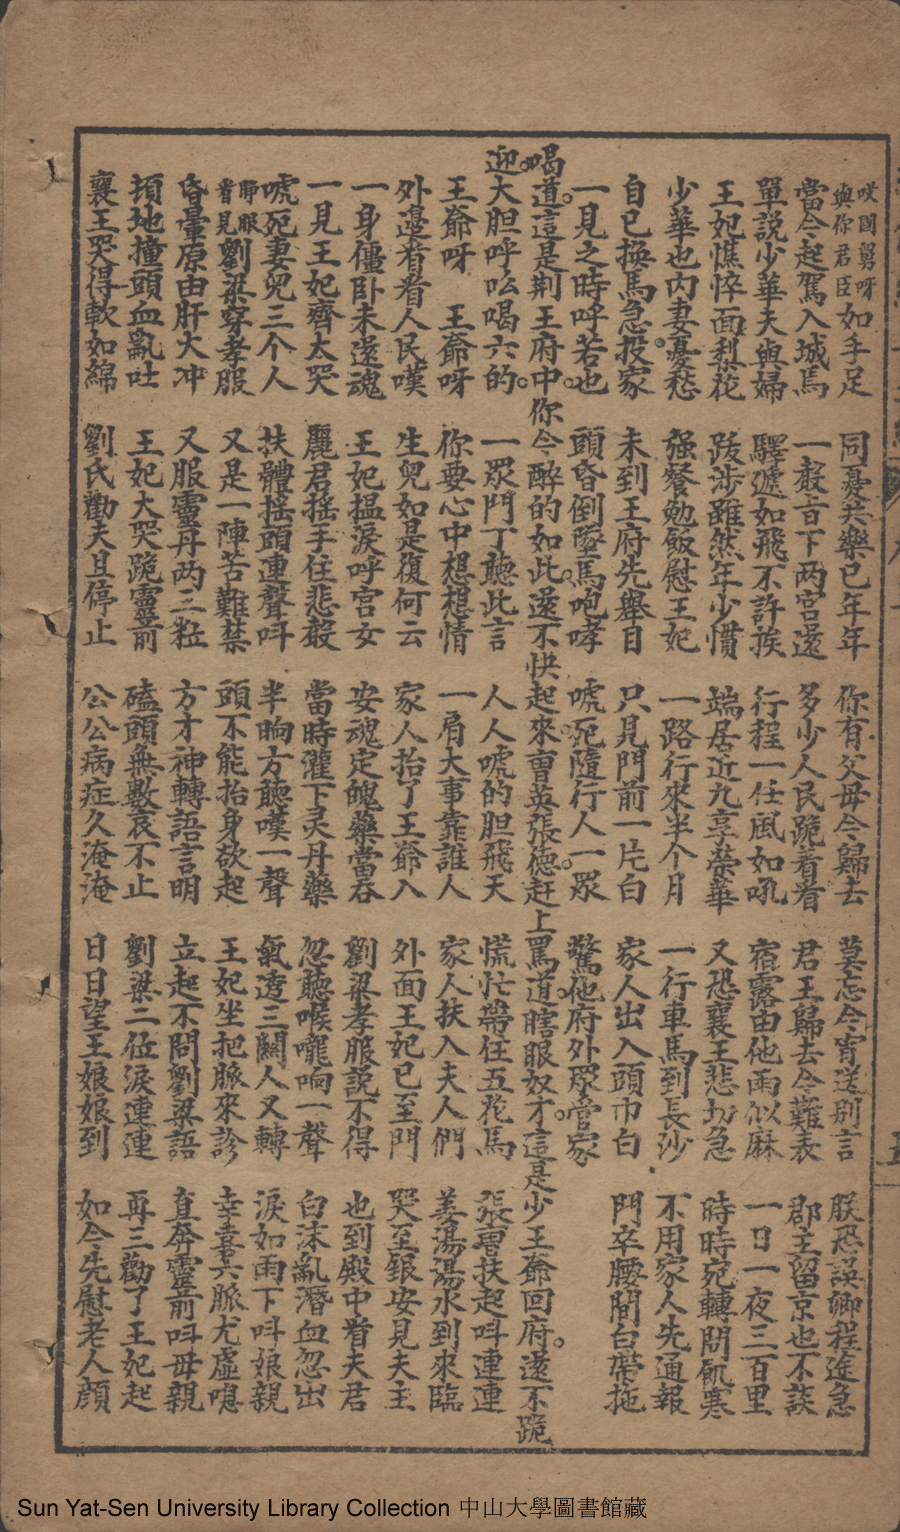 哎國舅呀與你君臣如手足 同憂共樂已年年 你有父母今歸去 莫忘今宵送別言 朕恐誤卿程途急
當今起駕入城馬 一聲旨下两宮還 多少人民跪着看 君王歸去今難表 郡主留京也不談
單說少華夫與婦 驛遞如飛不許挨 行程一任風如吼 宿露由他雨似麻 一日一夜三百里
王妃憔悴面梨花 跋涉雖然年少慣 端居近九享榮華 又恐襄王悲切急 時時宛轉問飢寒
少華也内妻憂愁 强餐勉飯慰王妃 一路行來半个月 一行車馬到長沙 不用家人先通報
自己換馬急投家 未到王府先舉目 只見門前一片白 家人出入頭巾白 門卒腰間白帶拖
一見之時呼若也 頭昏倒墜馬咆哮 唬死隨行人一眾 驚他府外眾管家
喝道這是荆王府中你今醉的如此還不快起來曹英張德赶上罵道瞎眼奴才這是少王爺回府還不跪
迎大胆呼吆喝六的 一眾門丁聽此言 人人唬的胆飛天 慌忙帶住五花馬 張曹扶起呌連連
王爺呀 王爺呀 你要心中想想情 一肩大事靠誰人 家人扶入夫人們 姜湯湯水到來臨
外邊看看人民嘆 生兒如是復何云 家人抬了王爺入 外面王妃已至門 哭至銀安見夫主
一身僵卧未還魂 王妃揾淚呼宫女 安魂定魄藥當吞 劉梁孝服説不得 也到殿中看夫君
一見王妃齊太哭 麗君摇手住悲聲 當時灌下灵丹藥 忽聽喉嚨响一聲 白沫亂潛血忽出
唬死妻兒三个人 扶體摇頭連聲呌 半晌方聽嘆一聲 氣透三關人又轉 淚如雨下呌娘親
睜眼看見劉梁穿孝服 又是一陣苦難禁 頭不能抬身欲起 王妃坐把脈來診 幸喜六脈尤虛嗯
昏暈原由肝火冲 又服靈丹两三粒 方才神轉語言明 立起不問劉梁語 直奔靈前呌母親
頃地撞頭血亂吐 王妃大哭跪靈前 磕頭無數哀不止 劉梁二位淚連連 再三勸了王妃起
襄王哭得軟如綿 劉氏勸夫且停止 公公病症久淹淹 日日望王娘娘到 如今先慰老人顔
Sun Yat-Sen University Library Collection 中山大學圖書館藏